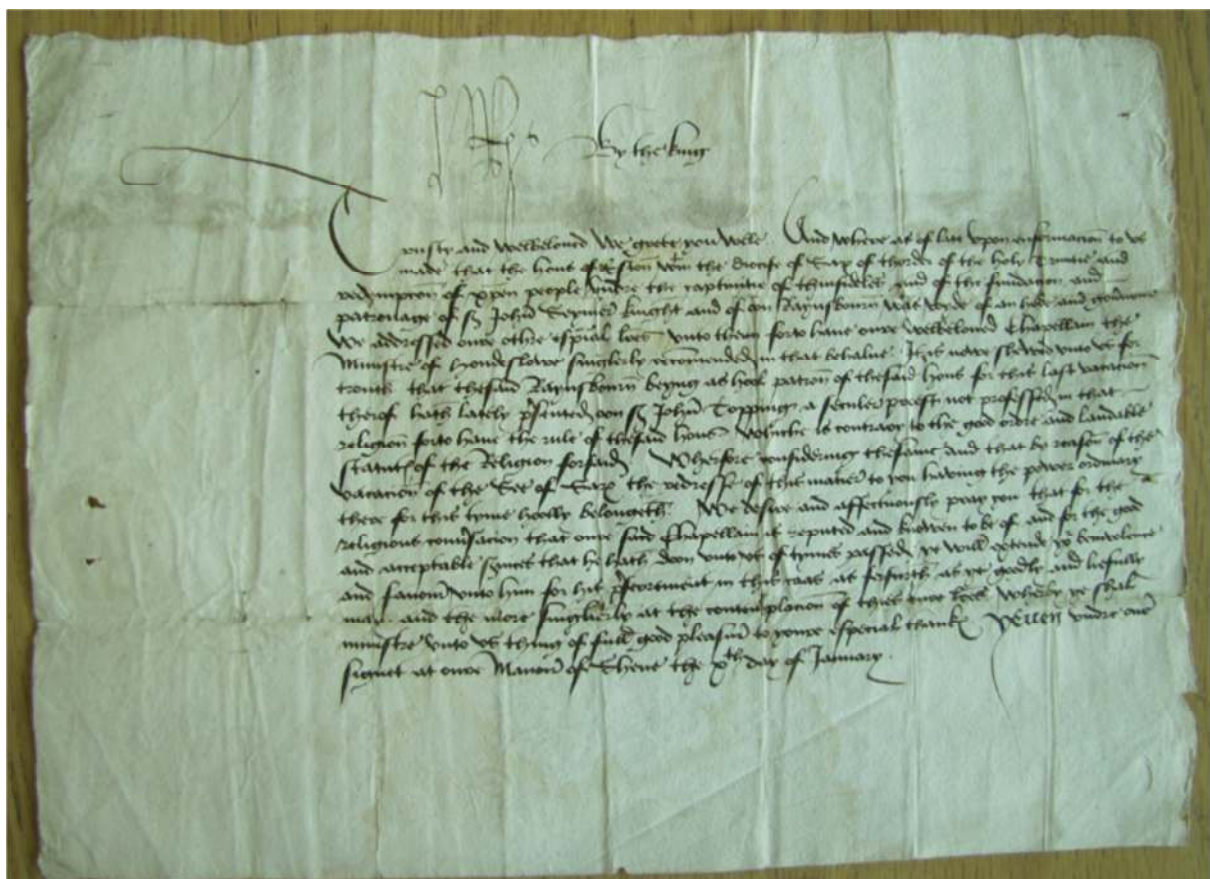 By the king
Trusty and welbeloved We grete you wele And where as of late upon enformacion to us
made that the hous of Eston within the diocise of Sar of thordre of the holy Trinitie and
redempcion of xpen people undre the captivitie of thinfideles and of the fundacion and
patronage of Sir John Seymer knight and of oon Raynsbourn was voide of an hede and
We addressed oure othre especial lres unto them forto have oure welbeloved Chapellain the
Ministre of Hondeslawe singlerly recomended in that behalve It is nowe shewed unto us for
trouth that thesaid Raynsbourn beyng as hool patron of thesaid hous for this last vacacion
therof hath lately presented oon Sir John Topping a seculer preest not professed in that
religion forto have the rule of thesaid hous whiche is contrary to the good ordre and laudable
statutes of the Religion forsaid Wherfore considering thesame and that by reason of the
vacacion of the See of Sar the redresse of this matier to you having the power ordinary
there for this tyme hooly belongeth We desire and affectuously pray you that for the
religious conversacion that oure said Chapellain is reputed and knowen to be of and for the good
and acceptable services that he hath doon unto us of tymes passed ye will extende your benivolence
and favour unto him for his preferrement in this caas as ferfurth as ye goodly and liefully
may and the more singlerly at the contemplacion of thies oure lres Wherby ye shal
ministre unto us thing of full good pleasur to youre especial thankes Yeven undre our
signet at oure Manour of Shene the xth day of January